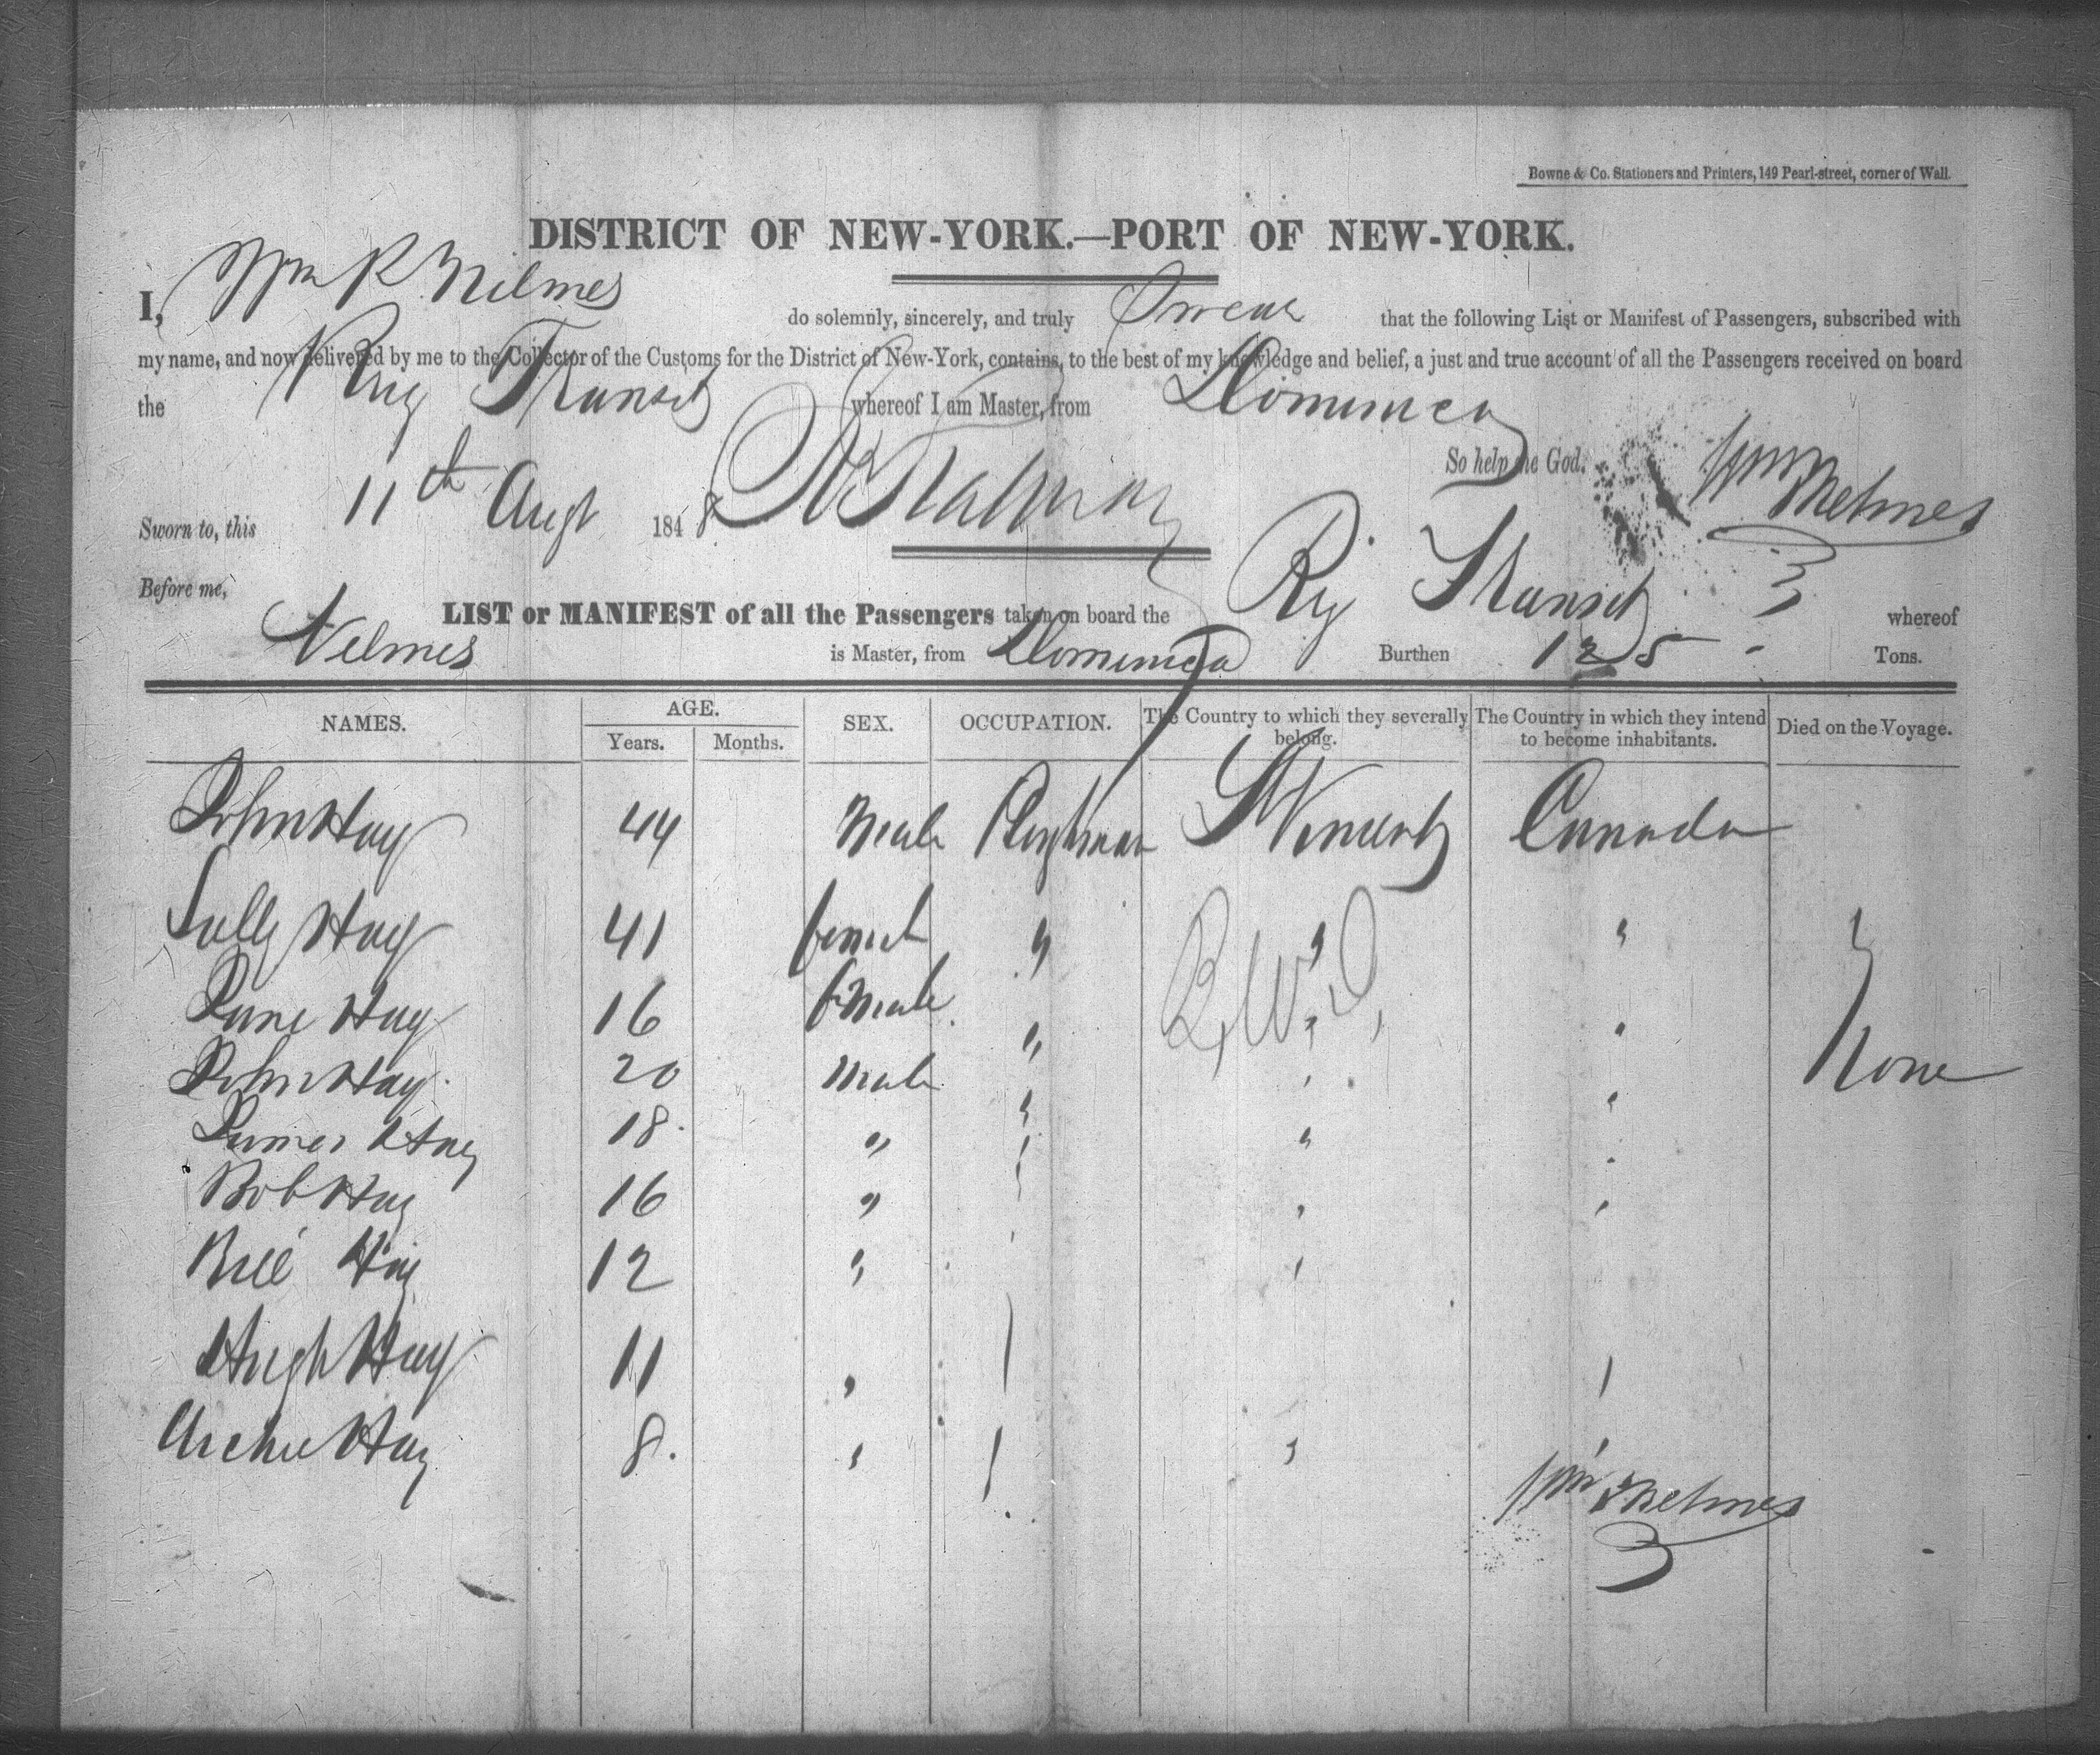 Bowne & Co. Stationers and Printers, 149 Pearl-street, corner of Wall.
DISTRICT OF NEW-YORK.—PORT OF NEW-YORK.
I, Wm R Nelmes do solemnly, sincerely, and truly Swear that the following List or Manifest of Passengers, subscribed with
my name, and now delivered by me to the Collector of the Customs for the District of New-York, contains, to the best of my knowledge and belief, a just and true account of all the Passengers received on board
the Brig Transit whereof I am Master, from Dominica
So help me God. Wm Nelmes
Sworn to, this 11th Augt 1848
Before me,
LIST or MANIFEST of all the Passengers taken on board the Brig Transit whereof
Nelmes is Master, from Dominica Burthen 125 Tons.
NAMES. AGE. SEX. OCCUPATION. The Country to which they severally belong. The Country in which they intend to become inhabitants. Died on the Voyage.
Years. Months.
John Hay 44 Male Ploughman St Vincent Canada
Sally Hay 41 female " " "
B.W.I.
Jane Hay 16 female " " "
None
John Hay 20 Male " " "
James Hay 18 " " " "
Bob Hay 16 " " "
Bill Hay 12 " "
Hugh Hay 11 "
Archie Hay 8 " "
Wm Nelmes